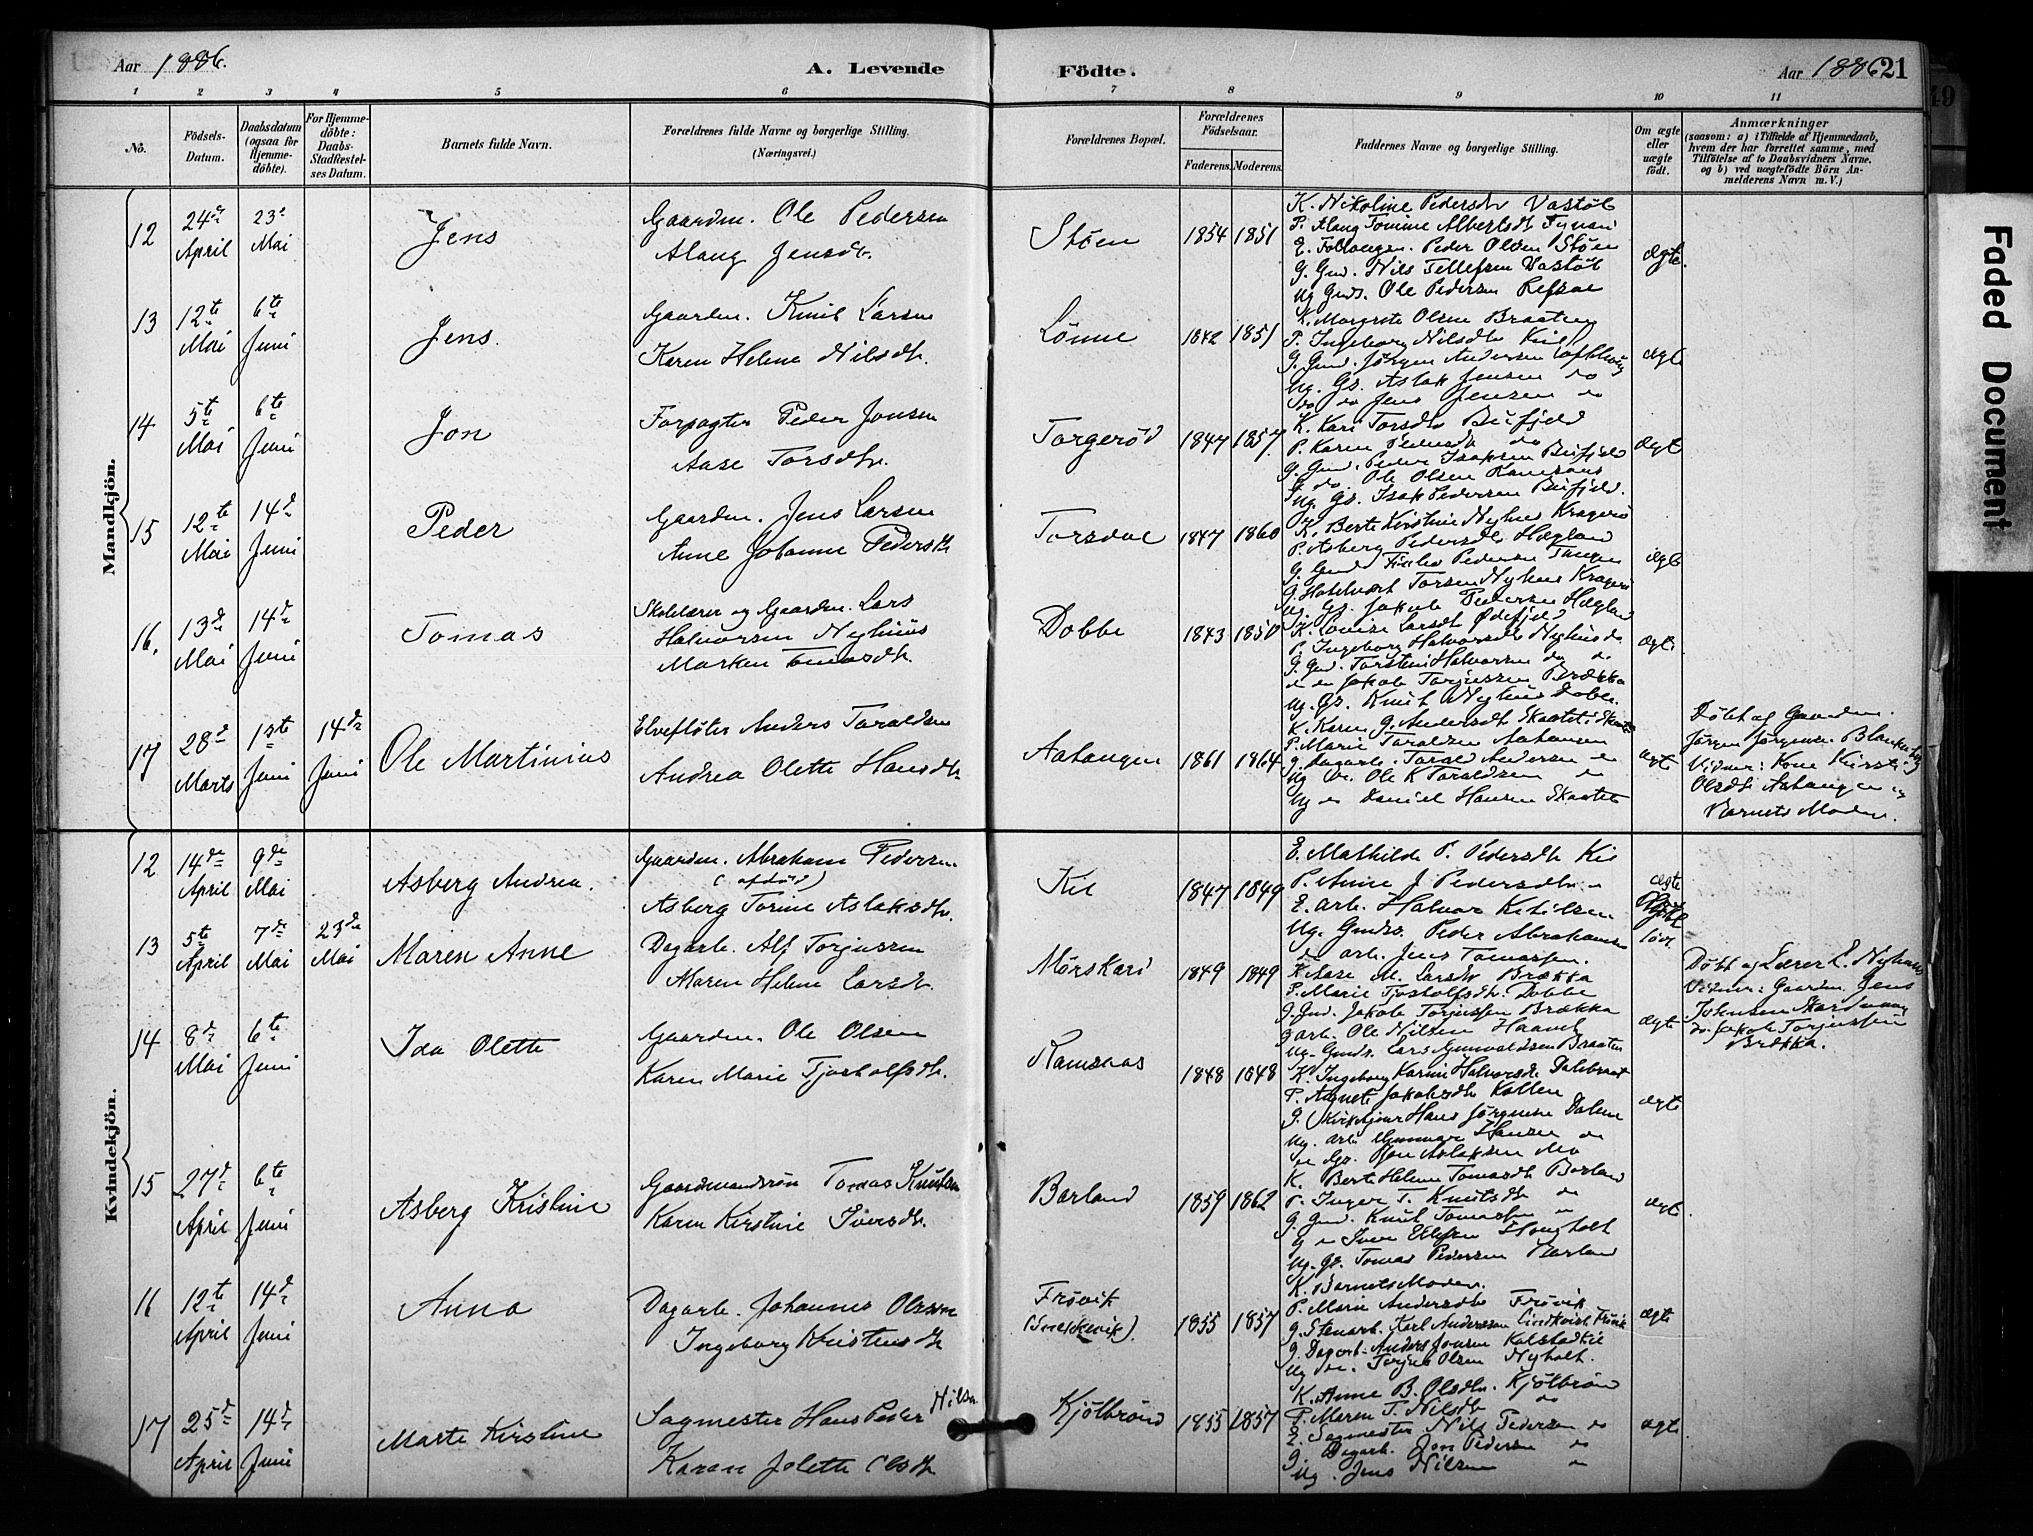 Aar 1886.
A. Levende
Födte.
Aar 1886
21
1 2 3 4 5 6 7 8 9 10 11
No.
Födsels-Datum.
Daabsdatum (ogsaa for Hjemme-döbte).
For Hjemme-döbte: Daabs-Stadfæstel-ses Datum.
Barnets fulde Navn.
Forældrenes fulde Navne og borgerlige Stilling.
(Næringsvei.)
Forældrenes Bopæl.
Forældrenes Födselsaar.
Faderens. Moderens.
Faddernes Navne og borgerlige Stilling.
Om ægte eller uægte födt.
Anmærkninger
(saasom: a) i Tilfælde af Hjemmedaab,
hvem der har forrettet samme, med
Tilföielse af to Daabsvidners Navne.
og b) ved uægtefödte Börn An-
melderens Navn m. V.)
Mandkjön.
12 24de April 23de Mai Jens
Gaardm. Ole Pedersen
Aslaug Jensdtr.
Støen 1854 1851
K. Nikoline Pedersdtr Vastøl
E. Peder Olsen Støen
G. Gmd. Nils Tellefsen Vastøl
Ug. Gmds. Ole Pedersen Refsae
ægte.
13 12te Mai 6te Juni Jens.
Gaardm. Knut Larsen
Karen Helene Nilsdtr.
Lønne 1842 1851
K. Margrete Olsen Braaten
P. Ingeborg Nilsdtr Kiil
G. Gmd. Jørgen Andersen
Ug. Gs. Aslak Jensen do
do do Jens Jensen do
ægte
14 5te Mai 6te Juni Jon
Forpagter Peder Jonsen
Aase Torsdtr.
Torgerød 1847 1857
K. Kari Torsdtr Bufjeld
P. Karen Pedersdtr do
G. Gmd. Peder Isaksen Bufjeld
G. do. Ole Olsen Ramsaas
Ug. Gs. Isak Pedersen Bufjeld.
ægte
15 12te Mai 14de Juni Peder
Gaardm. Jens Larsen
Anne Johanne Pedersdtr
Torsdal 1847 1860
K. Berte Kirstine Nyhus Kragerø
P. Asberg Pedersdtr Hægland
G. Gmd. Pedersen Tangen
G. Halvort Torsen Nyhus Kragerø
Ug. Gs. Jakob Pedersen Hægland
ægte
16. 13de Mai 14de Juni Tomas
Skolelærer og Gaardm. Lars
Halvorsen Nyhuus
Marken Tomasdtr.
Dobbe 1843 1850
K. Lovise Larsdtr Ødefjeld
P. Ingeborg Halvorsdtr Nyhus do
G. Gmd. Torstein Halvorsen do do
do do Jakob Torjussen Brækka
Ug. Gs. Knut Nyhus Dobbe.
ægte
17 28de Marts 1ste Juni 14de Juni Ole Martinius
Elvefløter Anders Taraldsen
Andrea Olette Hansdtr
Aatangen 1861 1864
K. Karen G. Andersdtr Skaatet
P. Marie Taraldsen Aatangen
G. Dagarb. Tarald Andersen do
Ug do. Ole K Taraldsen do
Ug do Daniel Hansen Skaatet
ægte
Døbt af Gaardm.
Jørgen Jørgensen Blankenberg
Vidner: Kone Kirsti
Olsdtr Aatangen og
Barnets Moder.
Kvindekjön.
12 14de April 9de Mai Asberg Andrea.
Gaardm. Abraham Pedersen
(afdød)
Asberg Torine Aslaksdtr.
Kil 1847 1849
E. Mathilde T. Pedersdtr Kil
P. Anne J Pedersdtr do
E. arb. Halvor Ketilsen
Ug. Gmds. Peder Abrahamsen
do arb. Jens Tomassen.
ægte
13 5te April 7de Mai 23de Mai Maren Anne
Dagarb. Alf Torjussen
Maren Helene Larsdtr.
Mørskari 1849 1849
K. Aase M. Larsdtr Brækka
P. Marie Tjostolfsdtr. Dobbe
G. Gmd. Jakob Torjussen Brækka
G arb. Ole Nilsen Haavet
Ug. Gmds. Lars Gunvaldsen Braaten
ægte
Døbt af Lærer L. Nyhuus
Vidner: Gaardm. Jens
Johnsen Skardmaan
do. Jakob Torjussen
Brækka.
14 8de Mai 6te Juni Ida Olette
Gaardm. Ole Olsen
Karen Marie Tjostolfsdtr.
Ramsaas 1848 1848
K. Ingeborg Karine Halvorsdtr Dalebraat
P. Agnete Jakobsdtr Kollen
G. Kirketjener Hans Jørgensen Dalene
Ug. arb. Gunnar Hansen do
do Gs. Jon Aslaksen Mo
ægte
15 27de April 6te Juni Asberg Kristine
Gaardmandssøn Tomas Knutsen
Karen Kirstine Iversdtr.
Barland 1859 1862
K. Berte Helene Tomasdtr Barland
P. Inger T. Knutsdtr do
G. Gmd. Knut Tomassen do
G do Iver Ellefsen Haugholt
Ug. Gs. Tomas Pedersen Barland
ægte.
16 12te April 14de Juni Anna
Dagarb. Johannes Olsson
Ingeborg Kristensdtr
Frøvik
(Snekkevik). 1855 1857
K. Barnets Moder.
P. Marie Andersdtr Frøvik
G. Stenarb. Karl Anderssen Lindkvist Frøvik
G. Dagarb. Anders Jonsen Kalstadkil
Ug do. Torjus Olsen Nyholt.
ægte
17 25de April 14de Juni Marte Kirstine
Sagmester Hans Peder Nilsen
Karen Jolette Olsdtr
Kjølbrønd 1855 1857
K. Anne B. Olsdtr. Kjølbrønd
P. Maren T. Nilsdtr do
E. Sagmester Nils Pedersen do
G. Dagarb. Jon Pedersen do
Ug. Jens Nilsen do
ægte.
Faded Document
49